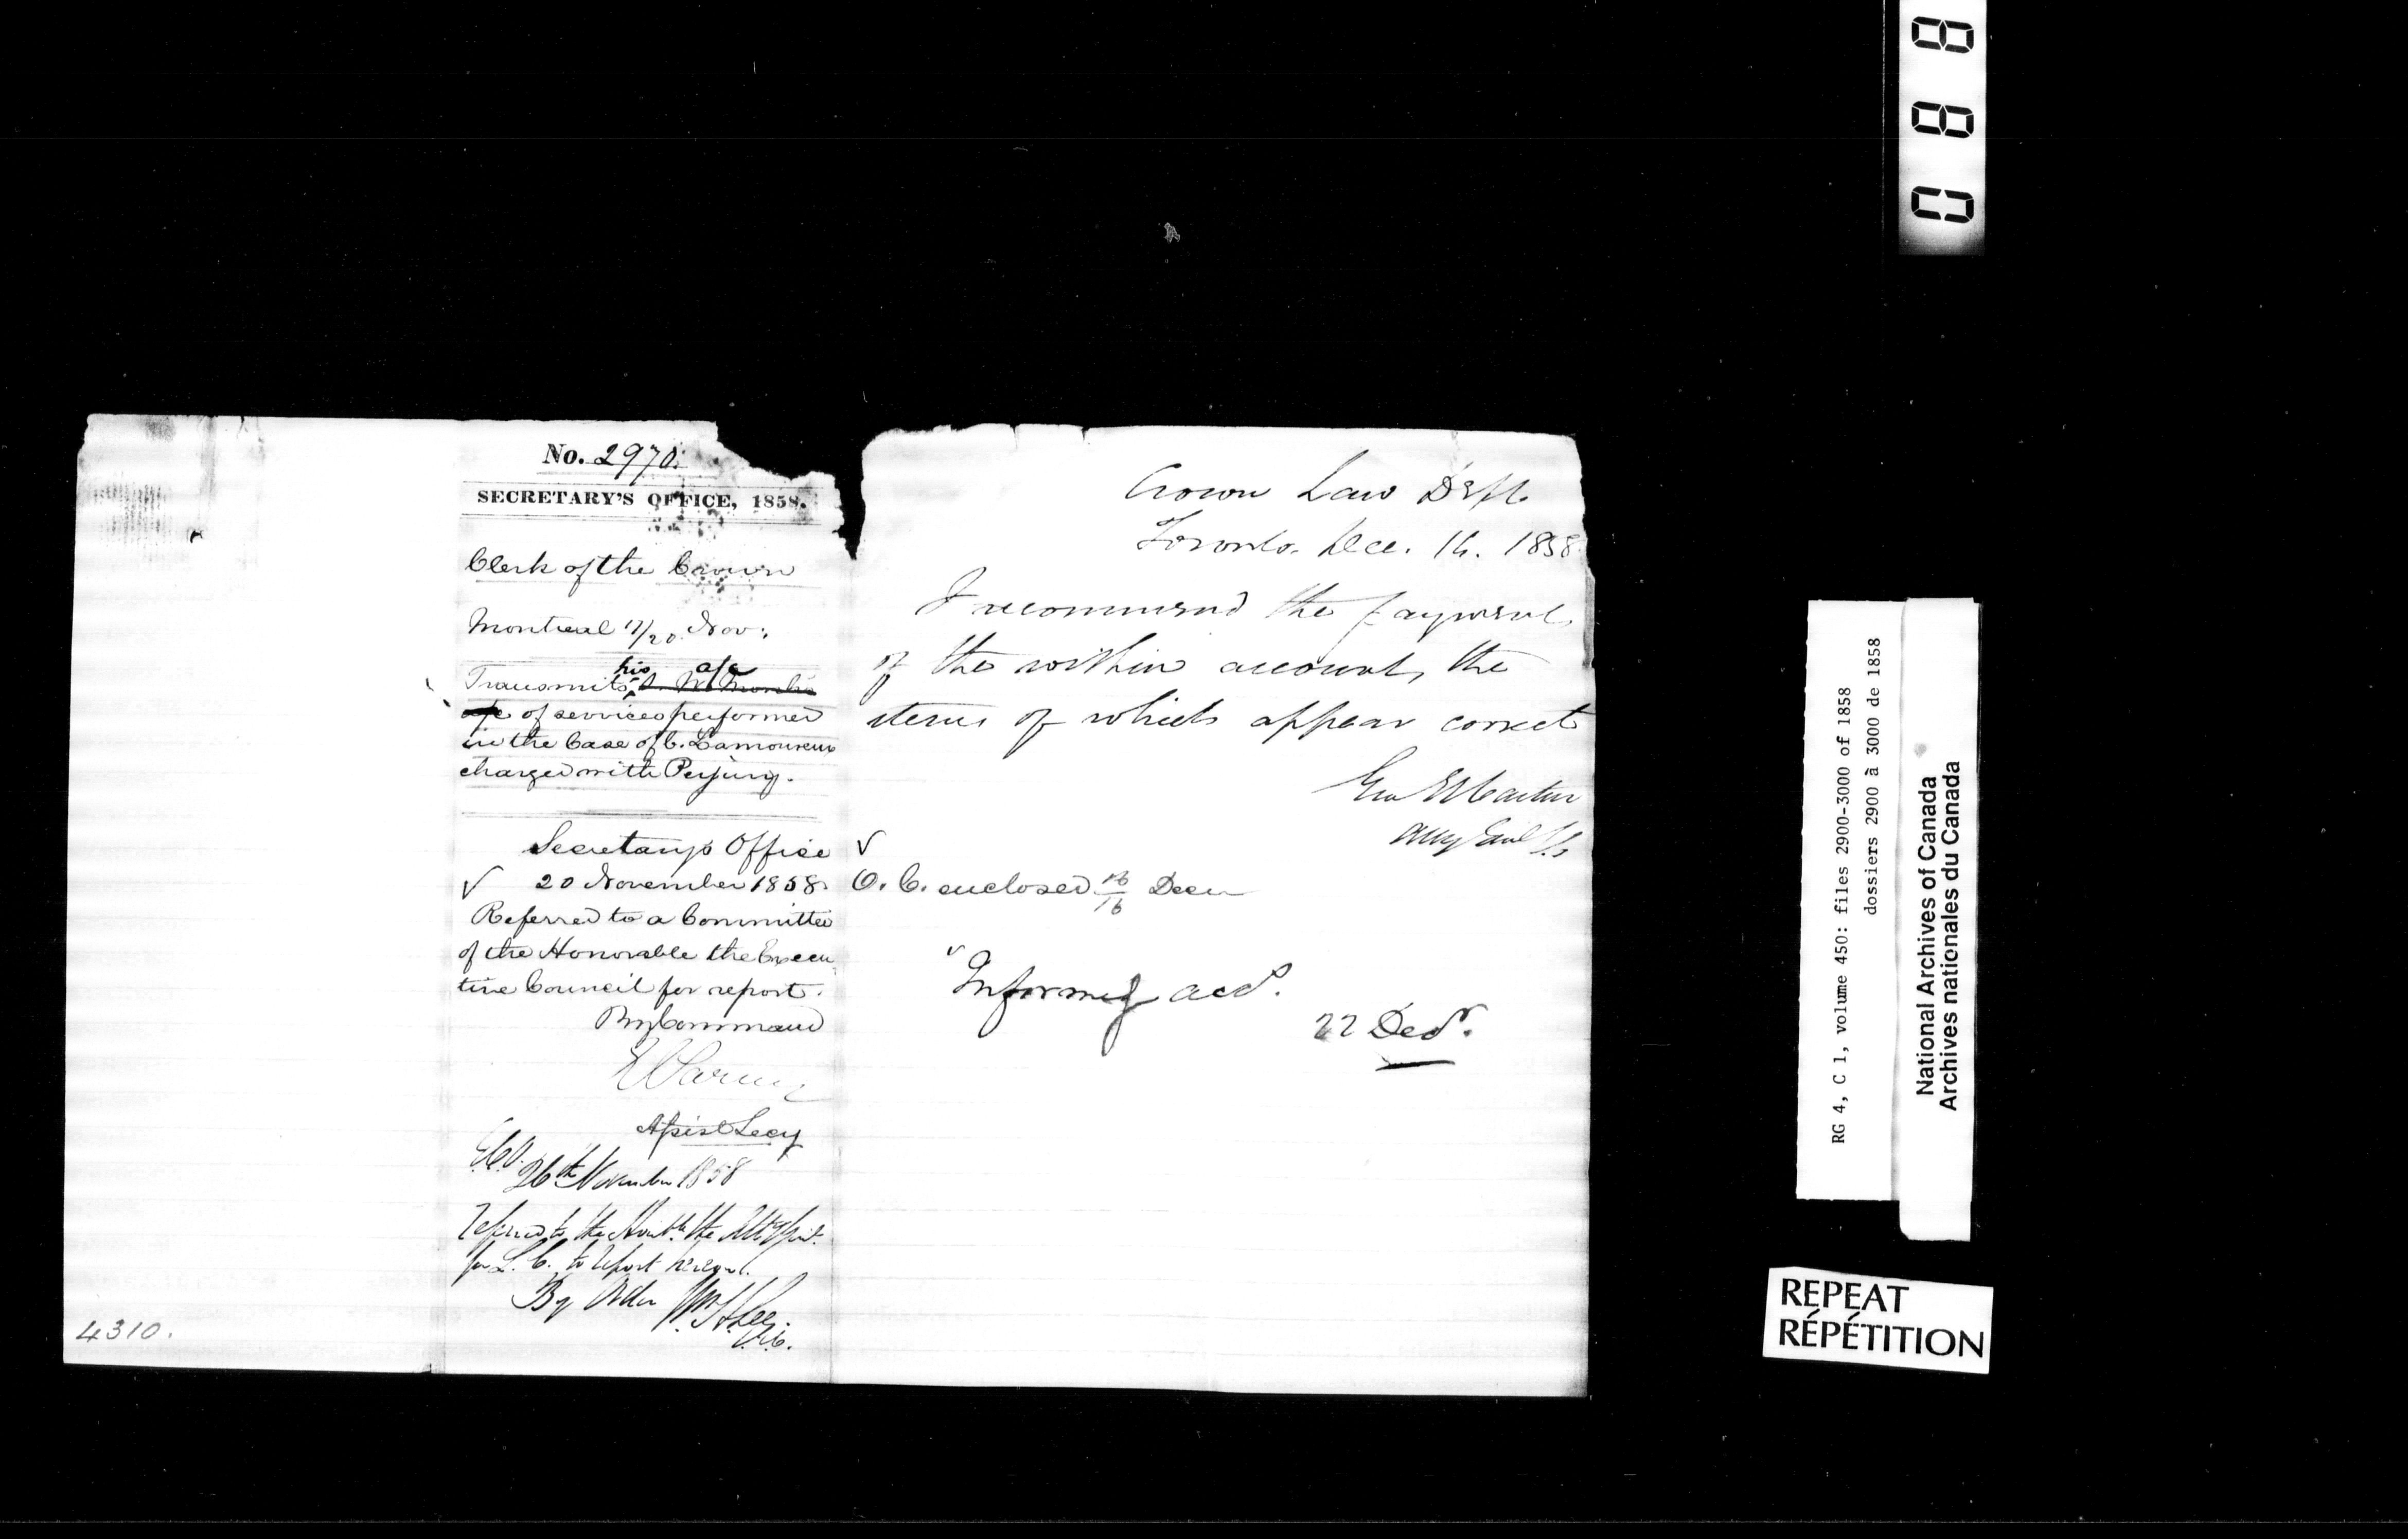 No. 2970.
SECRETARY'S OFFICE, 1858.
Clerk of the Crown
Montreal 17/20 Nov:
his a/c
Transmits
a/c of services performed
in the Case of C. Lamoureux
charged with Perjury.
Secretary's Office
√ 20 November 1858.
Referred to a Committee
of the Honorable the Execu-
tive Council for report.
By Command
E Parent
Assist Secy
E.C.O.
26th November 1858
Referred to the Honble. the Atty Genl.
for L. C. to report hereon.
By Order Wm. H. Lee
4310.
Crown Law Dept.
Toronto. Dec. 16. 1858
I recommend the payment
of the within account, the
items of which appear correct
Geo E Cartier
Atty Genl L.C.
√
O. C. enclosed 16/16 Decr
√ Informed accy.
22 Decr.
088
RG 4, C 1, volume 450: files 2900-3000 of 1858
dossiers 2900 à 3000 de 1858
National Archives of Canada
Archives nationales du Canada
REPEAT
RÉPÉTITION